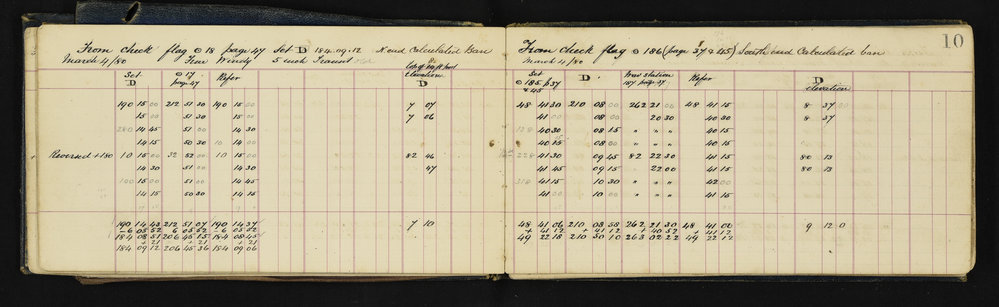 From check flag ⊙ 18 page 47 Set D 184.09.12 N end Calculated Ban
March 4/80 Fine Windy 5 inch Transit
elevation
Set ⊙ 17 Refer
D page 47 D
190 15 00 212 51 30 190 15 00 7 07
15 00 51 30 15 00 7 06
280 14 45 51 00 14 30
14 15 50 30 10 14 00
Reversed +180 10 15 00 32 52 00 10 15 00 82 46
14 30 51 00 14 30 47
100 15 00 51 00 14 45
14 15 50 30 14 15
190 14 43 212 51 07 190 14 37 7 10
-6 05 52 6 05 52 -6 05 52
184 08 51 206 45 15 184 08 45
+ 21 + 21 + 21
184 09 12 206 45 36 184 09 06
10
From check flag ⊙ 186 (page 37 & 45) South end Calculated ban
March 4/80
Set D Prev station Refer D
⊙ 185 p37 187 page 37 elevation
& 45
48 41 30 210 08 00 262 21 00 48 41 15 8 37 30
41 00 08 00 20 30 40 30 8 37
138 40 30 08 15 " " 40 30
40 15 08 00 " " 40 15
228 41 30 09 45 82 22 30 41 15 80 13
41 45 09 15 22 00 41 15 80 13
318 41 15 10 30 " " 42 00
41 00 10 00 " " 41 15
48 41 06 210 08 58 262 21 30 48 41 00 9 12 0
+ 41 12 + 41 12 + 40 52 + 41 12
49 22 18 210 50 10 263 02 22 49 22 12